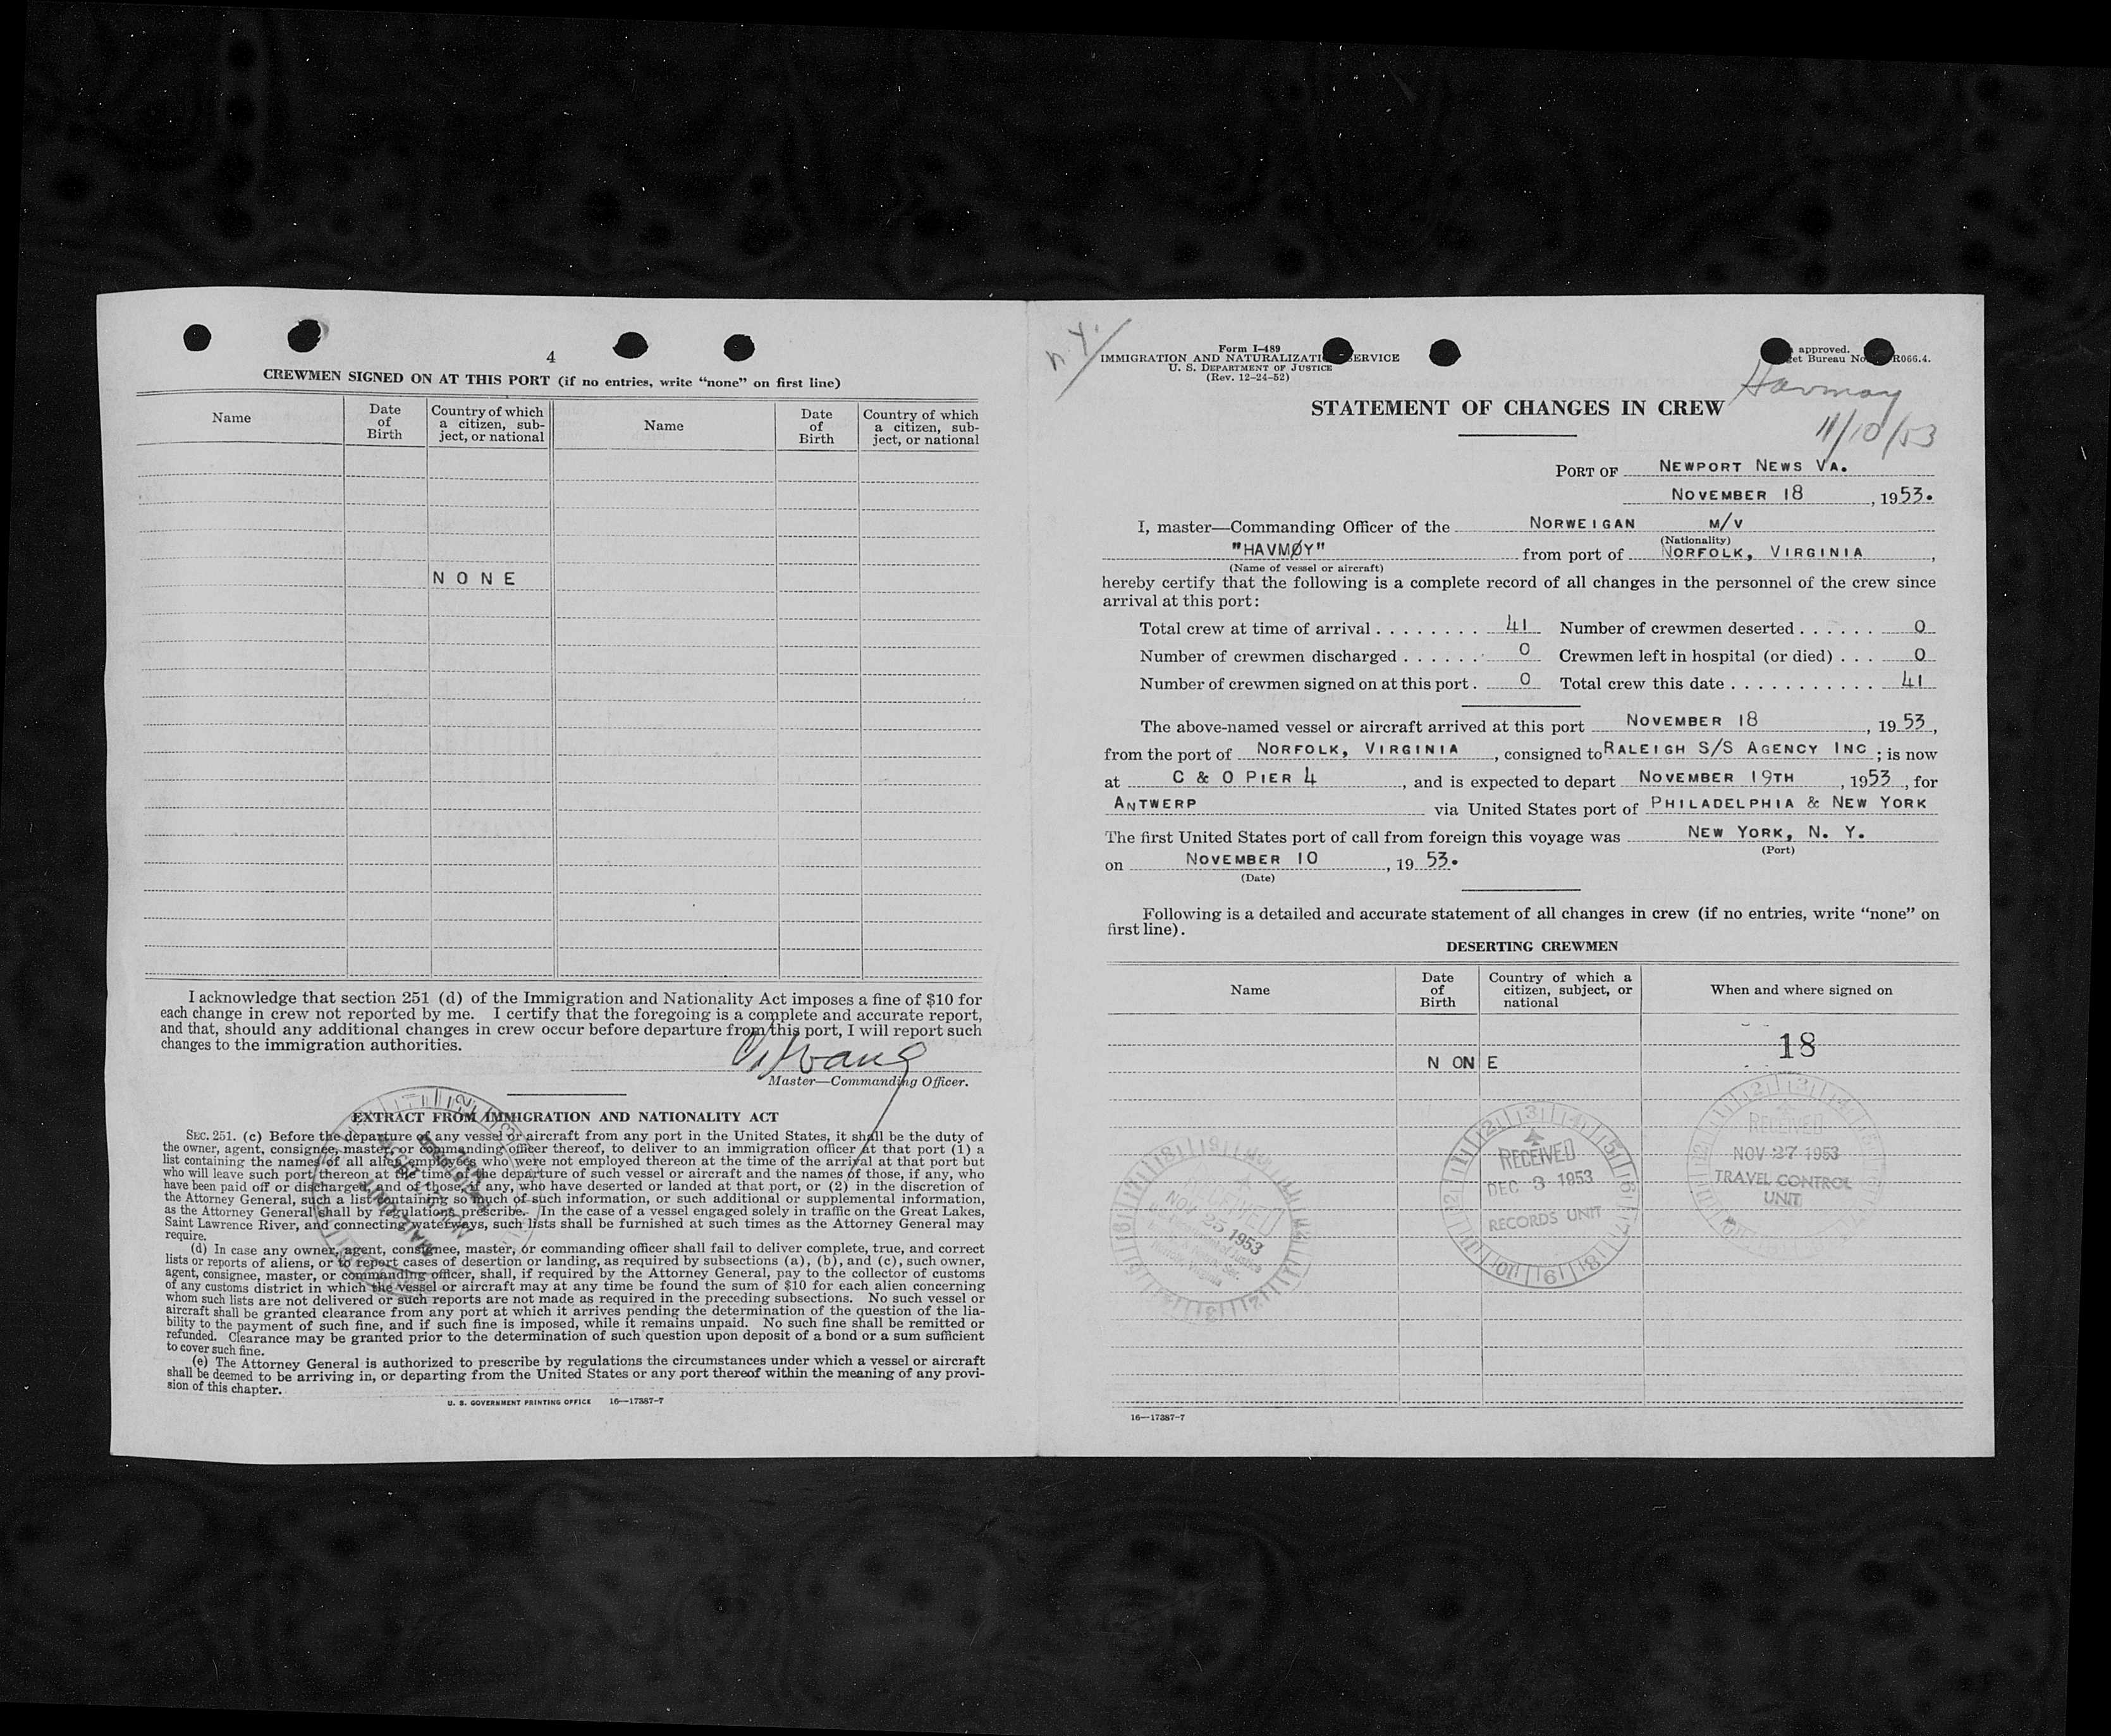 4
CREWMEN SIGNED ON AT THIS PORT (if no entries, write “none” on first line)
Name
Date of Birth
Country of which a citizen, subject, or national
Name
Date of Birth
Country of which a citizen, subject, or national
N O N E
I acknowledge that section 251 (d) of the Immigration and Nationality Act imposes a fine of $10 for
each change in crew not reported by me. I certify that the foregoing is a complete and accurate report,
and that, should any additional changes in crew occur before departure from this port, I will report such
changes to the immigration authorities.
Master—Commanding Officer.
EXTRACT FROM IMMIGRATION AND NATIONALITY ACT
SEC. 251. (c) Before the departure of any vessel or aircraft from any port in the United States, it shall be the duty of
the owner, agent, consignee, master, or commanding officer thereof, to deliver to an immigration officer at that port (1) a
list containing the names of all alien employees who were not employed thereon at the time of the arrival at that port but
who will leave such port thereon at the time of the departure of such vessel or aircraft and the names of those, if any, who
have been paid off or discharged, and of those, if any, who have deserted or landed at that port, or (2) in the discretion of
the Attorney General, such a list containing so much of such information, or such additional or supplemental information,
as the Attorney General shall by regulations prescribe. In the case of a vessel engaged solely in traffic on the Great Lakes,
Saint Lawrence River, and connecting waterways, such lists shall be furnished at such times as the Attorney General may
require.
(d) In case any owner, agent, consignee, master, or commanding officer shall fail to deliver complete, true, and correct
lists or reports of aliens, or to report cases of desertion or landing, as required by subsections (a), (b), and (c), such owner,
agent, consignee, master, or commanding officer, shall, if required by the Attorney General, pay to the collector of customs
of any customs district in which the vessel or aircraft may at any time be found the sum of $10 for each alien concerning
whom such lists are not delivered or such reports are not made as required in the preceding subsections. No such vessel or
aircraft shall be granted clearance from any port at which it arrives pending the determination of the question of the lia-
bility to the payment of such fine, and if such fine is imposed, while it remains unpaid. No such fine shall be remitted or
refunded. Clearance may be granted prior to the determination of such question upon deposit of a bond or a sum sufficient
to cover such fine.
(e) The Attorney General is authorized to prescribe by regulations the circumstances under which a vessel or aircraft
shall be deemed to be arriving in, or departing from the United States or any port thereof within the meaning of any provi-
sion of this chapter.
U. S. GOVERNMENT PRINTING OFFICE 16—17387-7
N.Y.
Form I-489
IMMIGRATION AND NATURALIZATI SERVICE
U. S. DEPARTMENT OF JUSTICE
(Rev. 12-24-52)
approved.
et Bureau No. R066.4.
Havmoy
11/10/53
STATEMENT OF CHANGES IN CREW
PORT OF NEWPORT NEWS VA.
NOVEMBER 18, 1953.
I, master—Commanding Officer of the NORWEIGAN M/V
(Nationality)
"HAVMØY" from port of NORFOLK, VIRGINIA,
(Name of vessel or aircraft)
hereby certify that the following is a complete record of all changes in the personnel of the crew since
arrival at this port:
Total crew at time of arrival . . . . . . . . 41 Number of crewmen deserted . . . . . . 0
Number of crewmen discharged . . . . . . 0 Crewmen left in hospital (or died) . . . 0
Number of crewmen signed on at this port . 0 Total crew this date . . . . . . . . . . . 41
The above-named vessel or aircraft arrived at this port NOVEMBER 18, 1953,
from the port of NORFOLK, VIRGINIA, consigned to RALEIGH S/S AGENCY INC; is now
at C & O PIER 4, and is expected to depart NOVEMBER 19TH, 1953, for
ANTWERP via United States port of PHILADELPHIA & NEW YORK
The first United States port of call from foreign this voyage was NEW YORK, N. Y.
(Port)
on NOVEMBER 10, 1953.
(Date)
Following is a detailed and accurate statement of all changes in crew (if no entries, write “none” on
first line).
DESERTING CREWMEN
Name
Date of Birth
Country of which a citizen, subject, or national
When and where signed on
18
N ON E
RECEIVED
NOV 25 1953
RECEIVED
DEC 3 1953
RECORDS UNIT
RECEIVED
NOV 27 1953
TRAVEL CONTROL
UNIT
16—17387-7